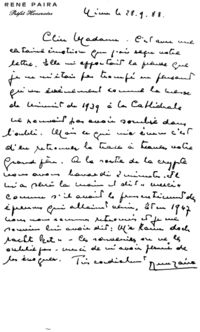 RENÉ PAIRA
Préfet Honoraire
Nîmes le 28.9.88.
Chère Madame. C'est avec une
certaine émotion que j'ai reçu votre
lettre. Elle m'apportait la preuve que
je ne m'étais pas trompé en pensant
qu'un événement comme la messe
de minuit de 1939 à la Cathédrale
ne pouvait pas avoir sombré dans
l'oubli. Mais ce qui m'a ému c'est
d'en retrouver la trace à travers votre
Grand père. A la sortie de la crypte
nous avons bavardé 2 minutes. Il
m'a serré la main et dit "merci"
comme s'il avait le pressentiment des
épreuves qui allaient venir. Et en 1947
nous nous sommes retrouvés et je me
souviens lui avoir dit: "M'r hann doch
racht" Ces souvenirs on ne les
oublie pas. merci de m'avoir permis de
les évoquer. Très cordialement
René Paira